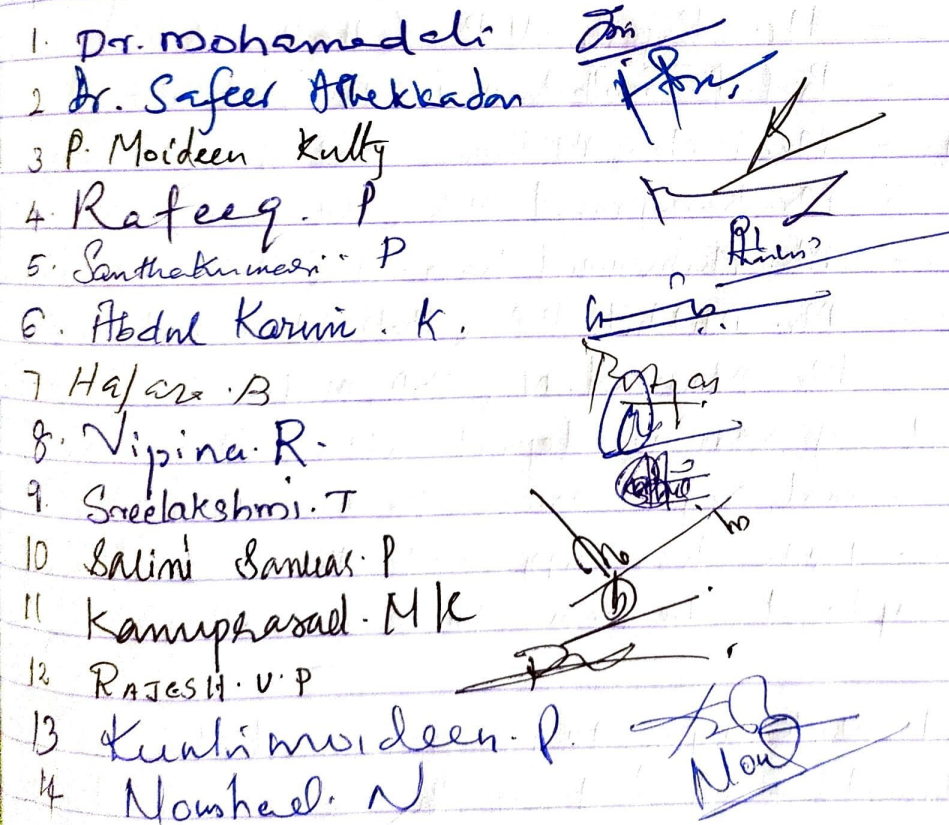 1. Dr. Mohamedali
2 Dr. Safeer Athekkadan
3 P. Moideen Kutty
4. Rafeeq. P
5. Santhakumari. P
6. Abdul Karim. K.
7 Hajara. B
8. Vipina. R.
9. Sreelakshmi. T
10 Salini Sankar. P
11 Kannuprasad. M K
12 RAJESH. V. P
13 Kunhimoideen. P.
14 Noushad. N
Nou